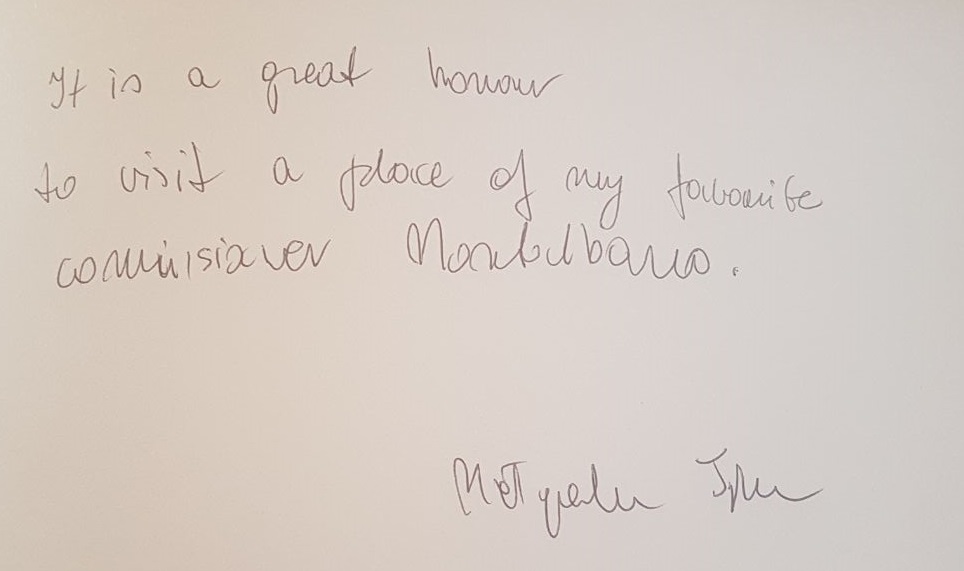 It is a great honour
to visit a place of my favourite
commissioner Montalbano.